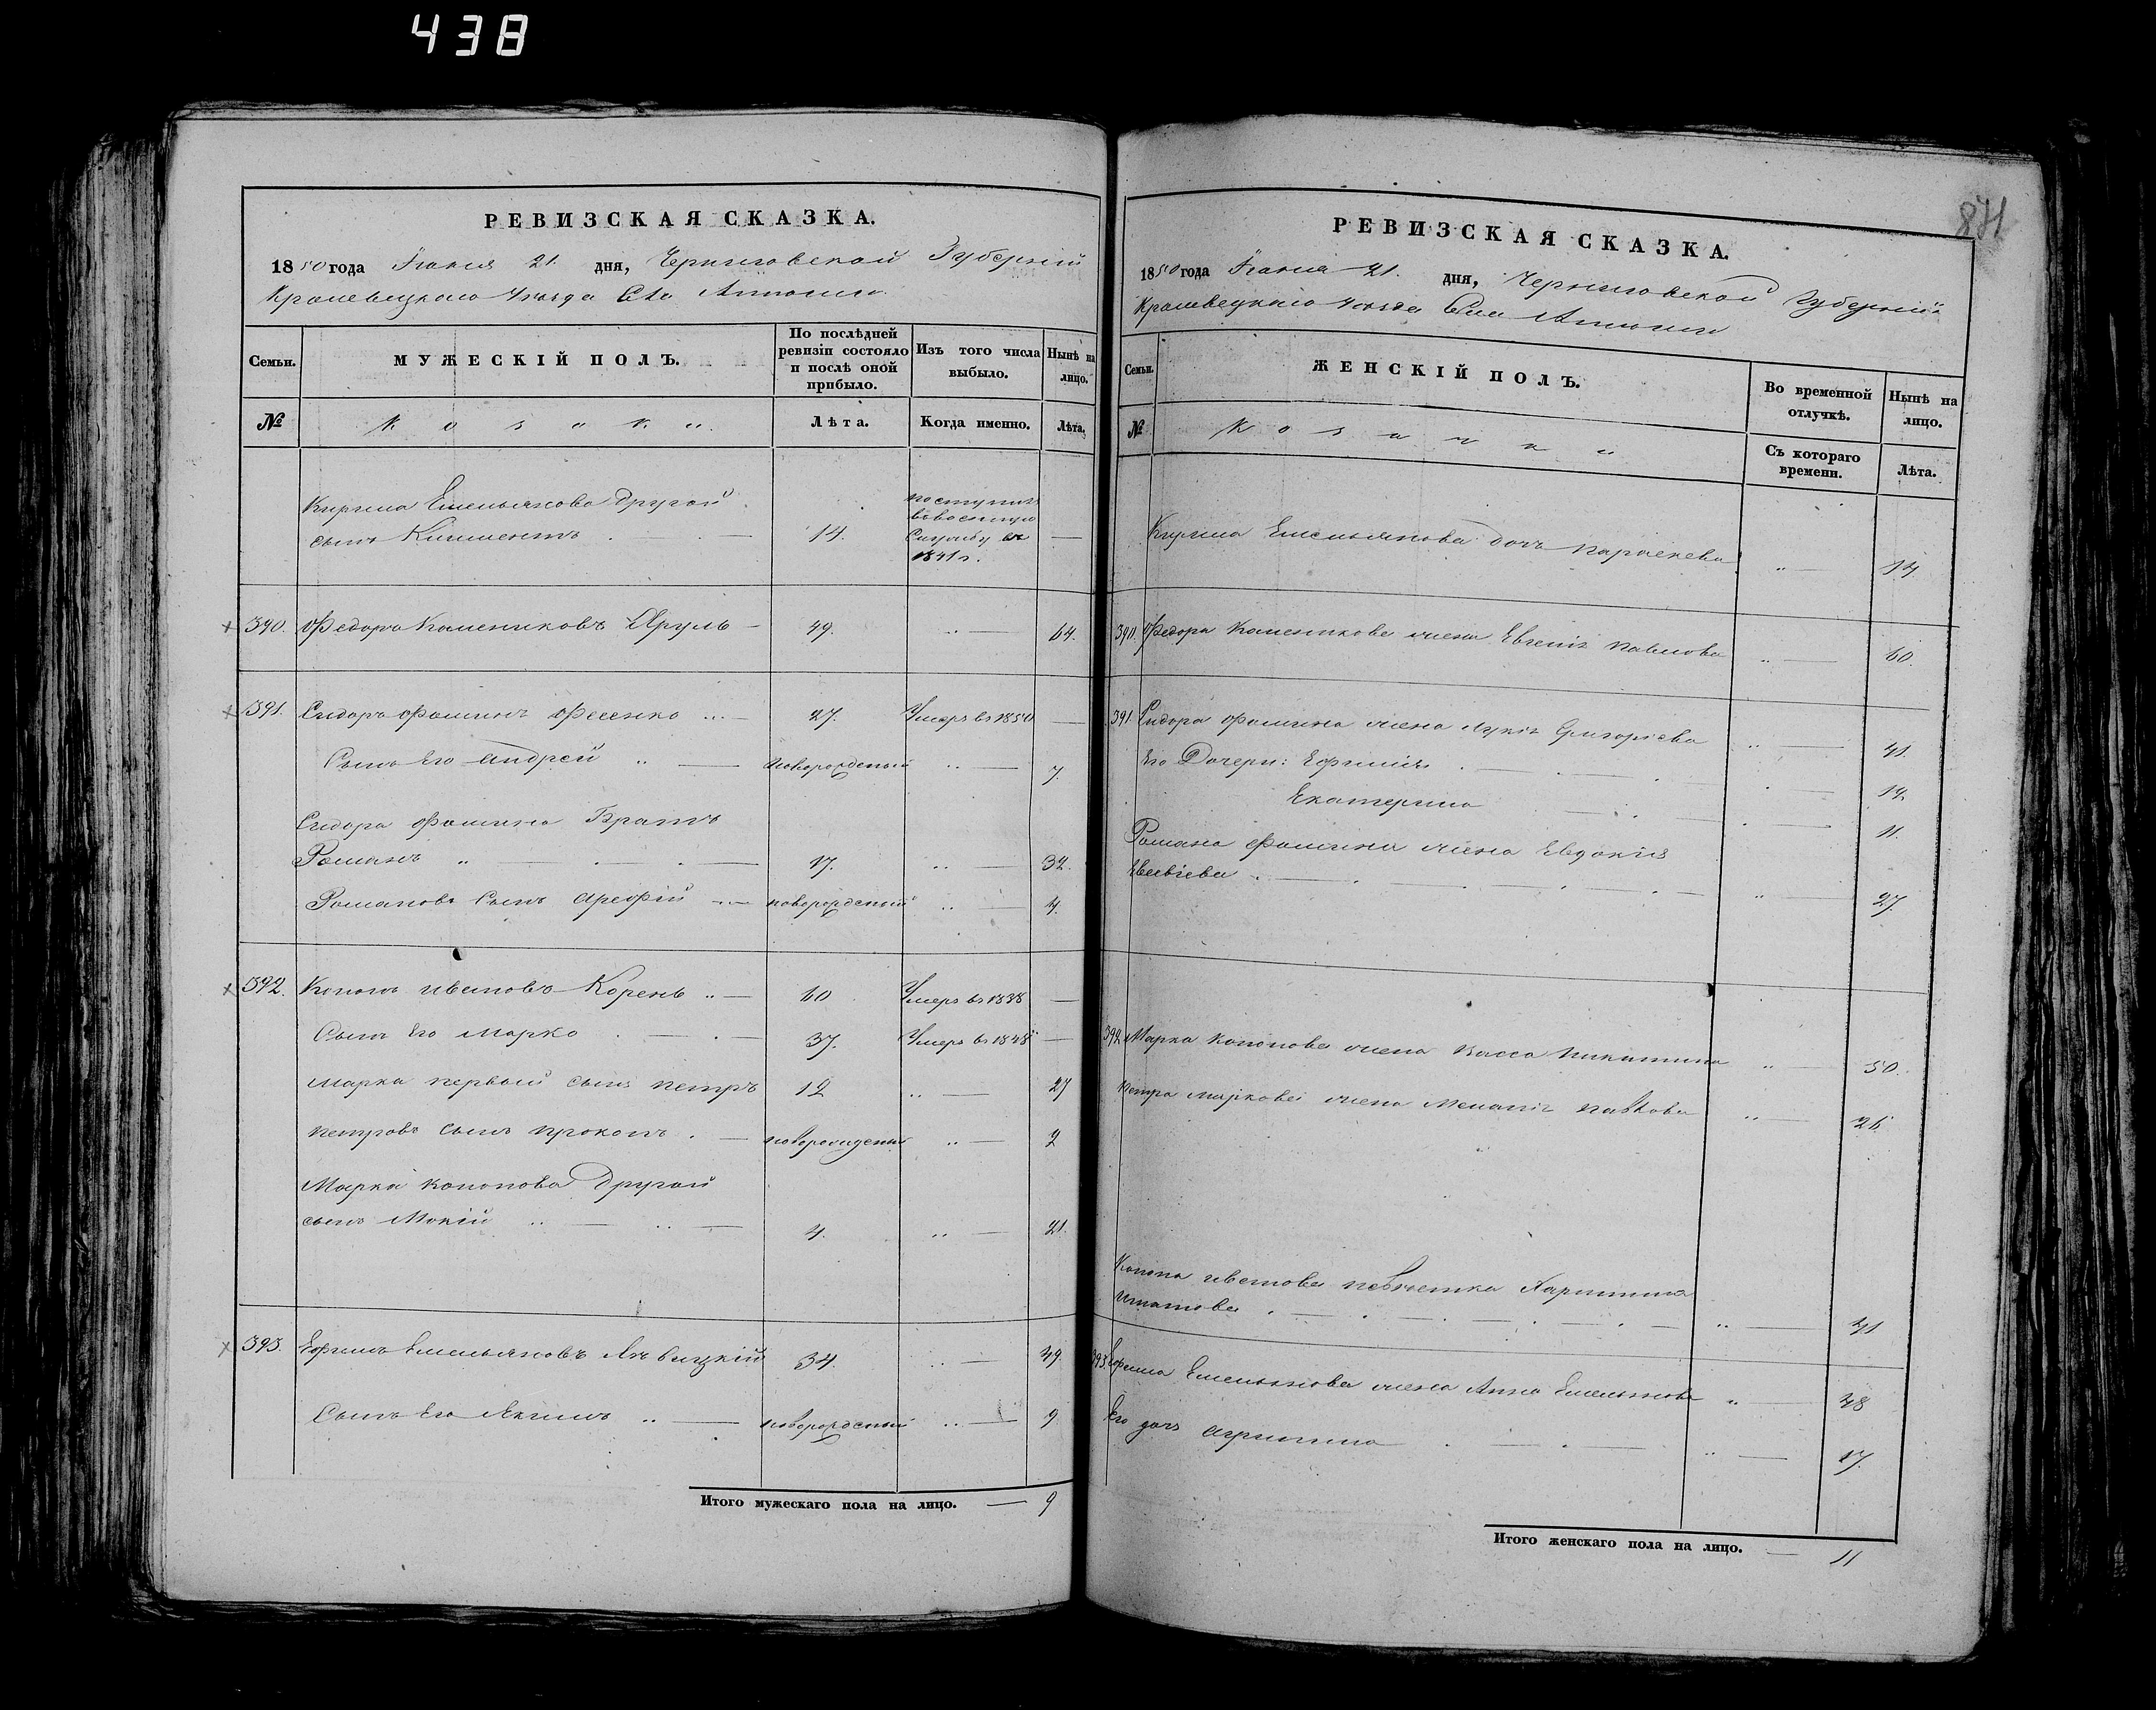 438
РЕВИЗСКАЯ СКАЗКА.
1850 года Іюня 21. дня, Черниговской Губерніи
Кролевецкаго Уезда
Семьи.
МУЖЕСКІЙ ПОЛЪ.
По послѣдней ревизіи состояло и послѣ оной прибыло.
Изъ того числа выбыло.
Нынѣ на лицо.
№
Козаки.
Лѣта.
Когда именно.
Лѣта.
Кирила Емельянова другой
сынъ Климентъ 14. поступилъ въ военную службу въ 1841 г. —
390. Федоръ Калениковъ 49. 64.
391. Сидоръ Фоминъ Фесенко 27. Умеръ въ 1850 —
Сынъ Его Андрей новорожденый 7.
Сидора Фомина Братъ
Романъ 17. 32.
Романовъ Сынъ Арефій новорожденый 4.
392. Кононъ Ивановъ Корень 60 Умеръ въ 1838 —
Сынъ Его Марко 37. Умеръ въ 1848 —
Марка первый сынъ Петръ 12 27
Петровъ сынъ Прокопъ новорожденый 2
Марка Кононова Другой
сынъ Мокій 4. 21.
393. Ефимъ Емельяновъ 34. 49
Сынъ Его Якимъ новорожденый 9
Итого мужескаго пола на лицо. — 9
871
РЕВИЗСКАЯ СКАЗКА.
1850 года Іюня 21. дня, Черниговской Губерніи
Кролевецкаго Уезда Села
Семьи.
ЖЕНСКІЙ ПОЛЪ.
Во временной отлучкѣ.
Нынѣ на лицо.
№
Козачки
Съ котораго времени.
Лѣта.
Кирила Емельянова дочь Параскева 14.
390. Федора Каленикова жена Евгенія Павлова 60.
391. Сидора Фомина жена Лукія Григоріева 41.
Его Дочери: Ефимія 14.
Екатерина 11.
Романа Фомина жена Евдокія
Евсѣіева 27.
392 Марка Кононова жена Васса Никитина 50.
Петра Маркова жена Меланія 26
Конона Иванова невѣстка
41
393. Ефима Емельянова жена Анна Емельянова 48
Его дочь Агрипина 17.
Итого женскаго пола на лицо. — 11